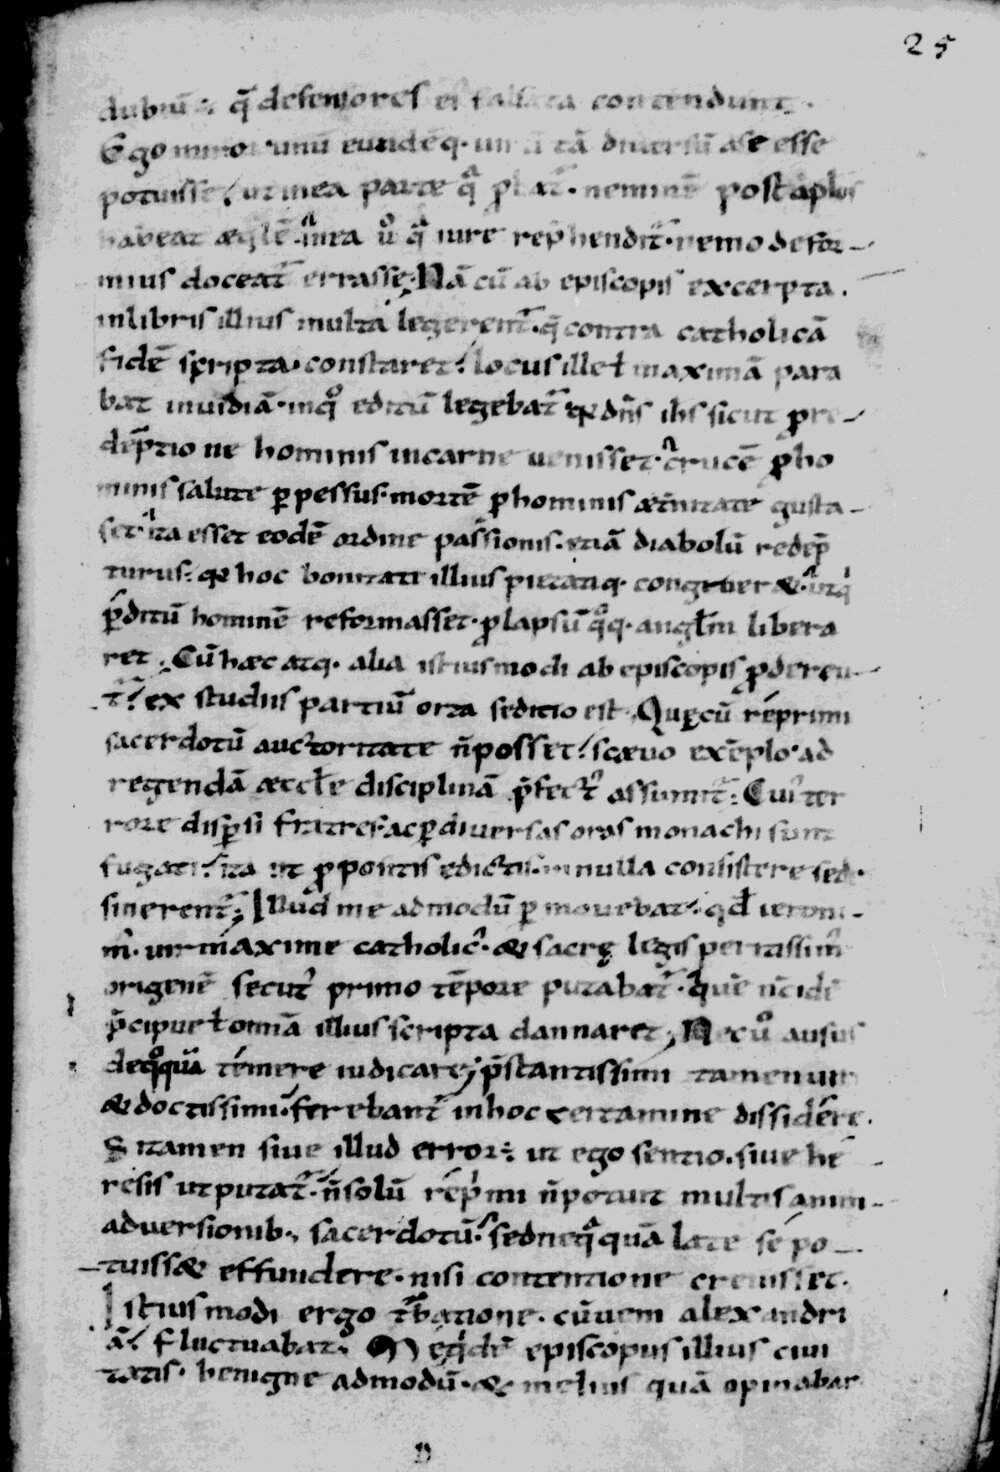 25
dubiũ; q̃ defensores ei falsata contendunt.
Ego miror unũ eundẽq. tã diuersũ ase esse
potuisse; ut inea parte q̃ ꝓbat̃. neminẽ post aplos
habeat æq̃lẽ. inea ũo q̃ iure rep̃hendit̃. nemo defor-
mius doceat̃ errasse; Nã cũ ab episcopis excerpta.
inlibris illius multa legerent̃. q̃ contra catholicã
fidẽ scripta. constaret; locus ille ł maximã para
bat inuidiã. inq̃o editũ legebat̃ q̃ dñs ihs sicut ꝓre-
dẽptio ne hominis incarne uenisset. crucẽ ꝓho
minis salute ꝑpessus. mortẽ ꝓhominis æt̃nitate gusta-
set. ita esset eodẽ ordine passionis. etiã diabolũ redẽp
turus; q̃ hoc bonitati illius pietatiq. congrueret. utq̃
ꝑditũ hominẽ reformasset. ꝓlapsũ q̃oq. anglm libera
ret; Cũ hæc atq. alia istiusmodi ab episcopis ꝓderen-
t̃; ex studiis partiũ orta seditio est. Quę cũ reprimi
sacerdotũ auctoritate ñ posset; scæuo exẽplo. ad
regendã æccłe disciplinã p̃fect' assumit̃; Cui' ter
rore disꝑsi fratres ac ꝑ diuersas oras monachi sunt
fugati; ita ut ꝓpositis edictis. innulla consistere sede
sinerent̃; Illud me admodũ ꝑmouebat. qđ ieroni-
m'. uir maxime catholic'. & sacrę legis peritissim'
origenẽ secut' primo tẽpore putabat̃. quẽ ñc idẽ
p̃cipue ł omĩa illius scripta dannaret; Nec ũo ausus
deq̃oquã temere iudicare; p̃stantissimi tamen uiri
& doctissimi. ferebant̃ inhoc certamine dissidere.
S; tamen siue illud error; ut ego sentio. siue he-
resis ut putat̃. ñ solũ rep̃mi ñ potuit multis anim-
aduersionib. sacerdotũ. sed neq̃quã late se po-
tuiss& effundere. nisi contentione creuisset.
Istiusmodi ergo t̃batione. cũ ueni alexandri
ã; fluctuabat. Me q̃dẽ episcopus illius ciui
tatis. benigne admodũ. & melius quã opinabar